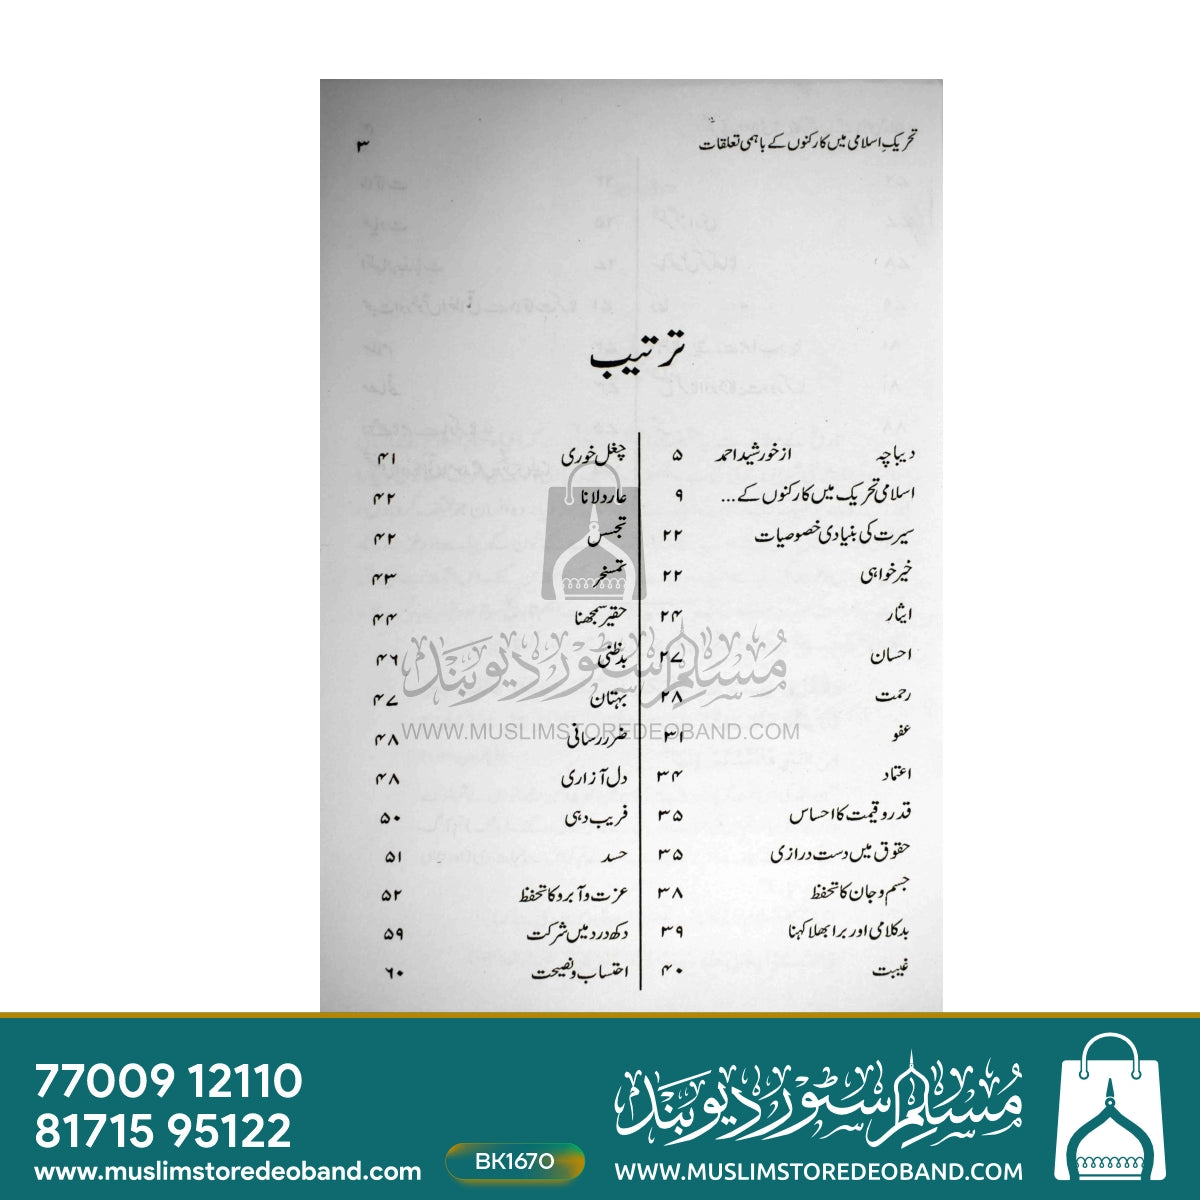 تحریک اسلامی میں کارکنوں کے باہمی تعلقات ۳
ترتیب
دیباچہ از خورشید احمد ۵
اسلامی تحریک میں کارکنوں کے ... ۹
سیرت کی بنیادی خصوصیات ۲۲
خیر خواہی ۲۲
ایثار ۲۴
احسان ۲۷
رحمت ۲۸
عفو ۳۱
اعتماد ۳۴
قدر و قیمت کا احساس ۳۵
حقوق میں دست درازی ۳۵
جسم و جان کا تحفظ ۳۸
بدکلامی اور برا بھلا کہنا ۳۹
غیبت ۴۰
چغل خوری ۴۱
عار دلانا ۴۲
تجسس ۴۲
تمسخر ۴۳
حقیر سمجھنا ۴۴
بدظنی ۴۶
بہتان ۴۷
ضرر رسانی ۴۸
دل آزاری ۴۸
فریب دہی ۵۰
حسد ۵۱
عزت و آبرو کا تحفظ ۵۲
دکھ درد میں شرکت ۵۹
احتساب و نصیحت ۶۰
مسلم سٹور دیوبند
WWW.MUSLIMSTOREDEOBAND.COM
77009 12110
81715 95122
www.muslimstoredeoband.com
BK1670
مسلم سٹور دیوبند
WWW.MUSLIMSTOREDEOBAND.COM